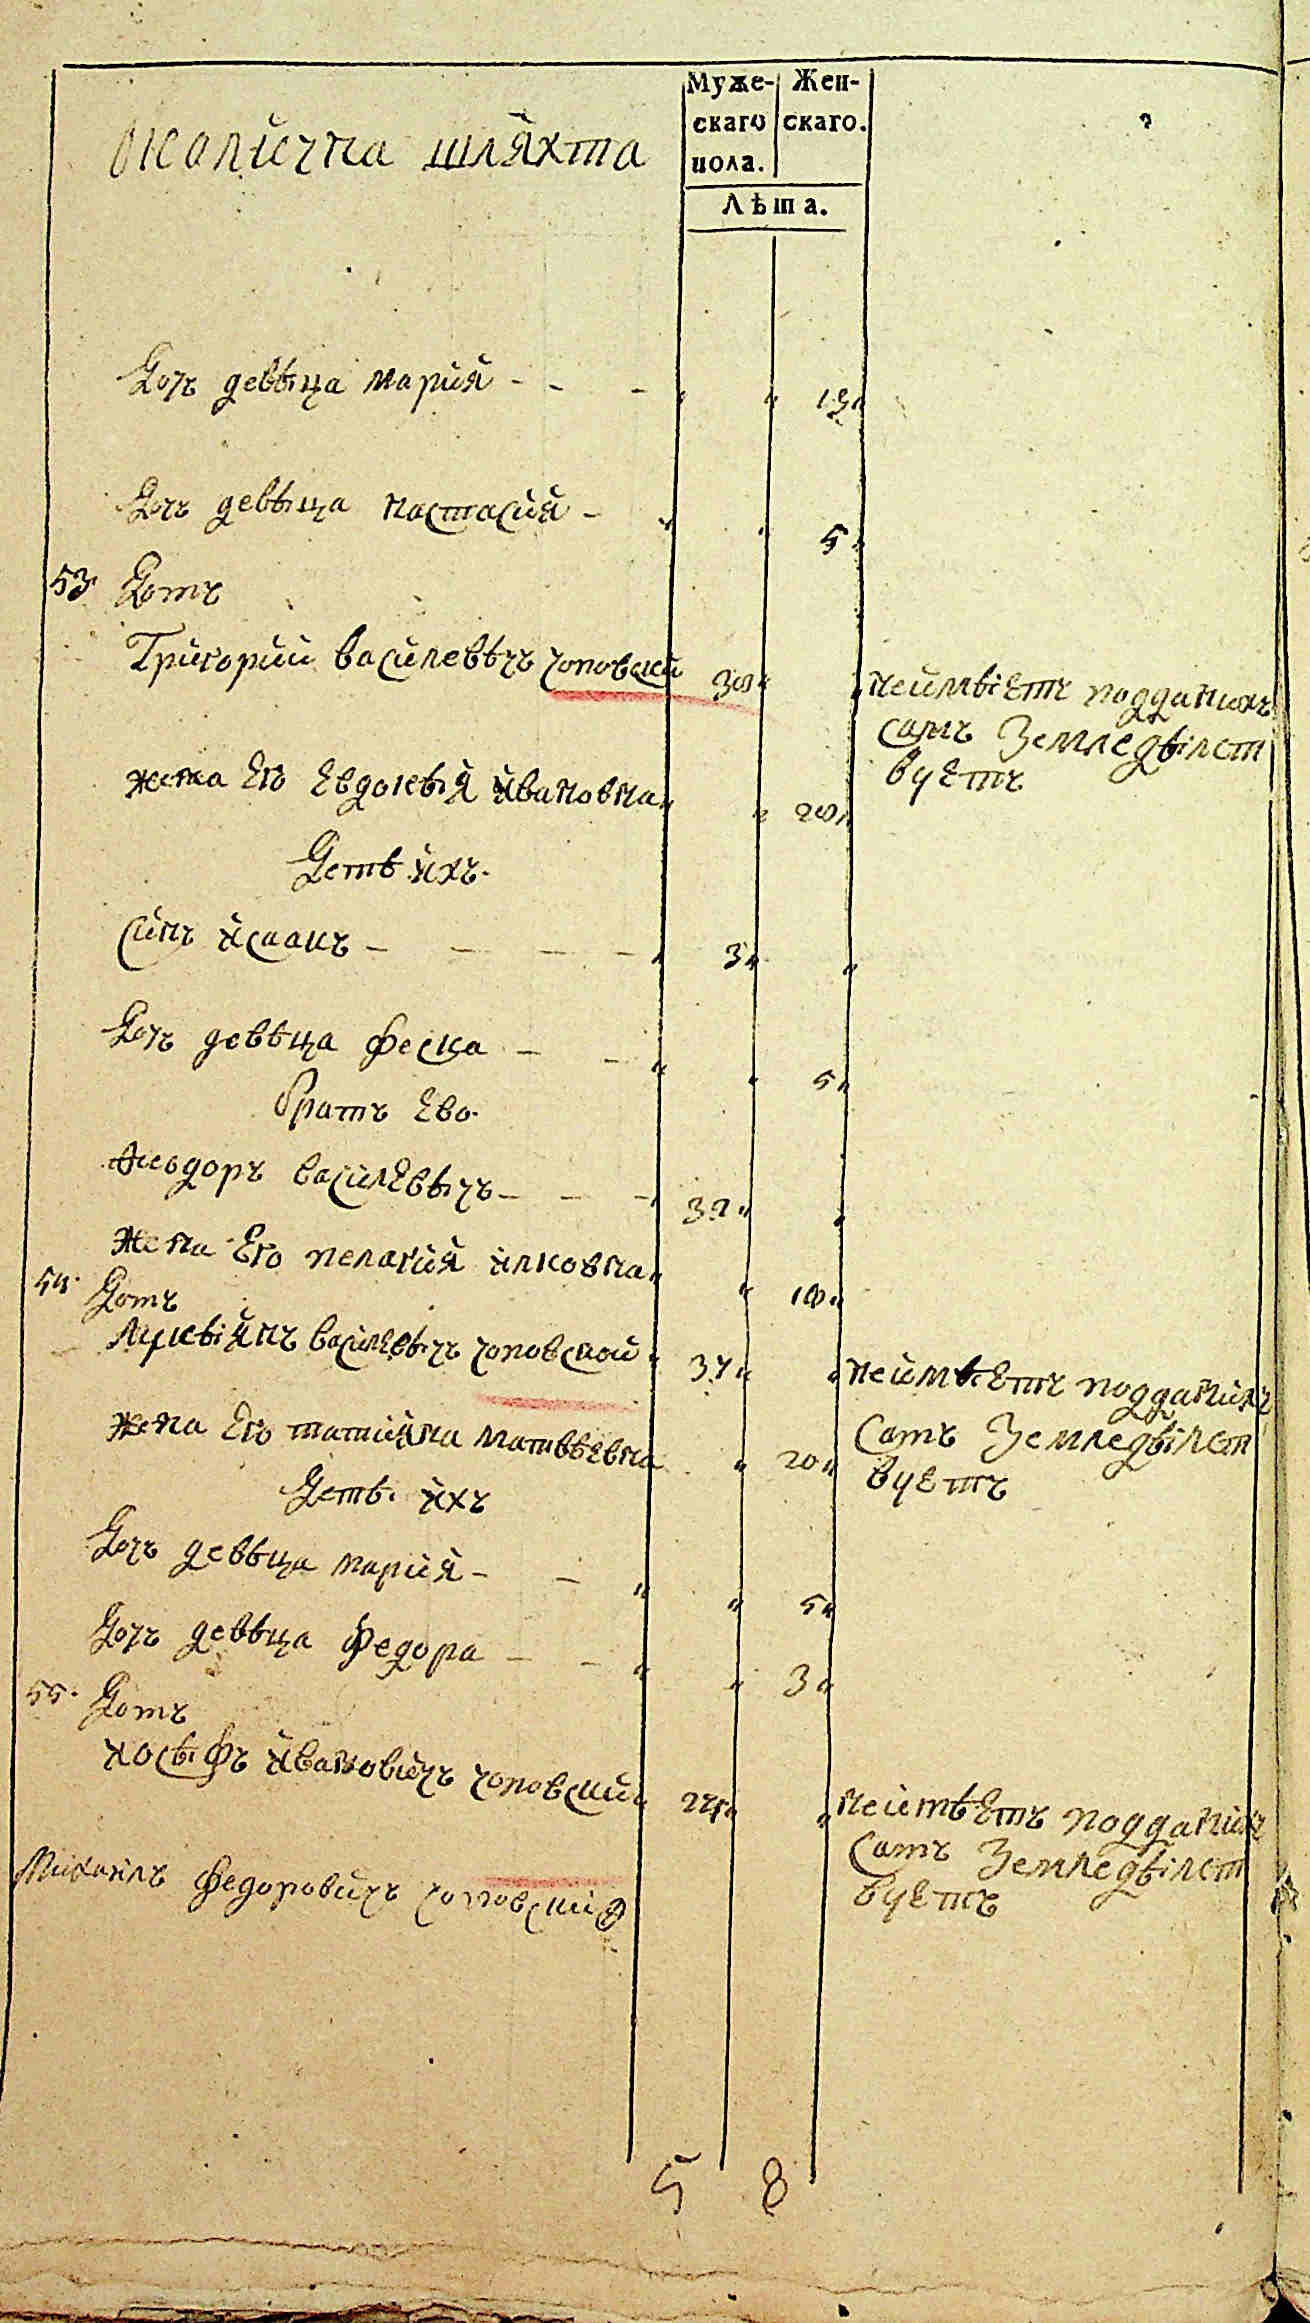 Околична шляхта
Муже-
скаго
пола.
Жен-
скаго.
Лѣта.
Дочь девѣца мария - - - 13
Дочь девѣца настасия - 5
53 Домъ
Григорий василевѣчъ чоповский 30
неимѣетъ подданихъ
самъ Земледѣлст
вуетъ
жена Его Евдокѣя йвановна 20
Детѣ йхъ.
Синъ йсаакъ - - - - 3
Дочь девѣца феска - - 5
братъ Ево.
Феодоръ василЕвѣчъ - - - 32
жена Его пелагия илковна 18
54. Домъ
Лукѣянъ василЕвѣчъ чоповской 37
неимѣЕтъ подданихъ
Самъ Земледѣлст
вуЕтъ
жена Его татияна матвѣЕвна 20
Детѣ. йхъ
Дочь девѣца мария - - 5
Дочь девѣца Федора - - 3
55. Домъ
йосѣфъ йвановичъ чоповский 25
неимѣЕтъ подданихъ
Самъ Земледѣлст
вуЕтъ
Михаилъ Федоровичъ чоповский
5 8